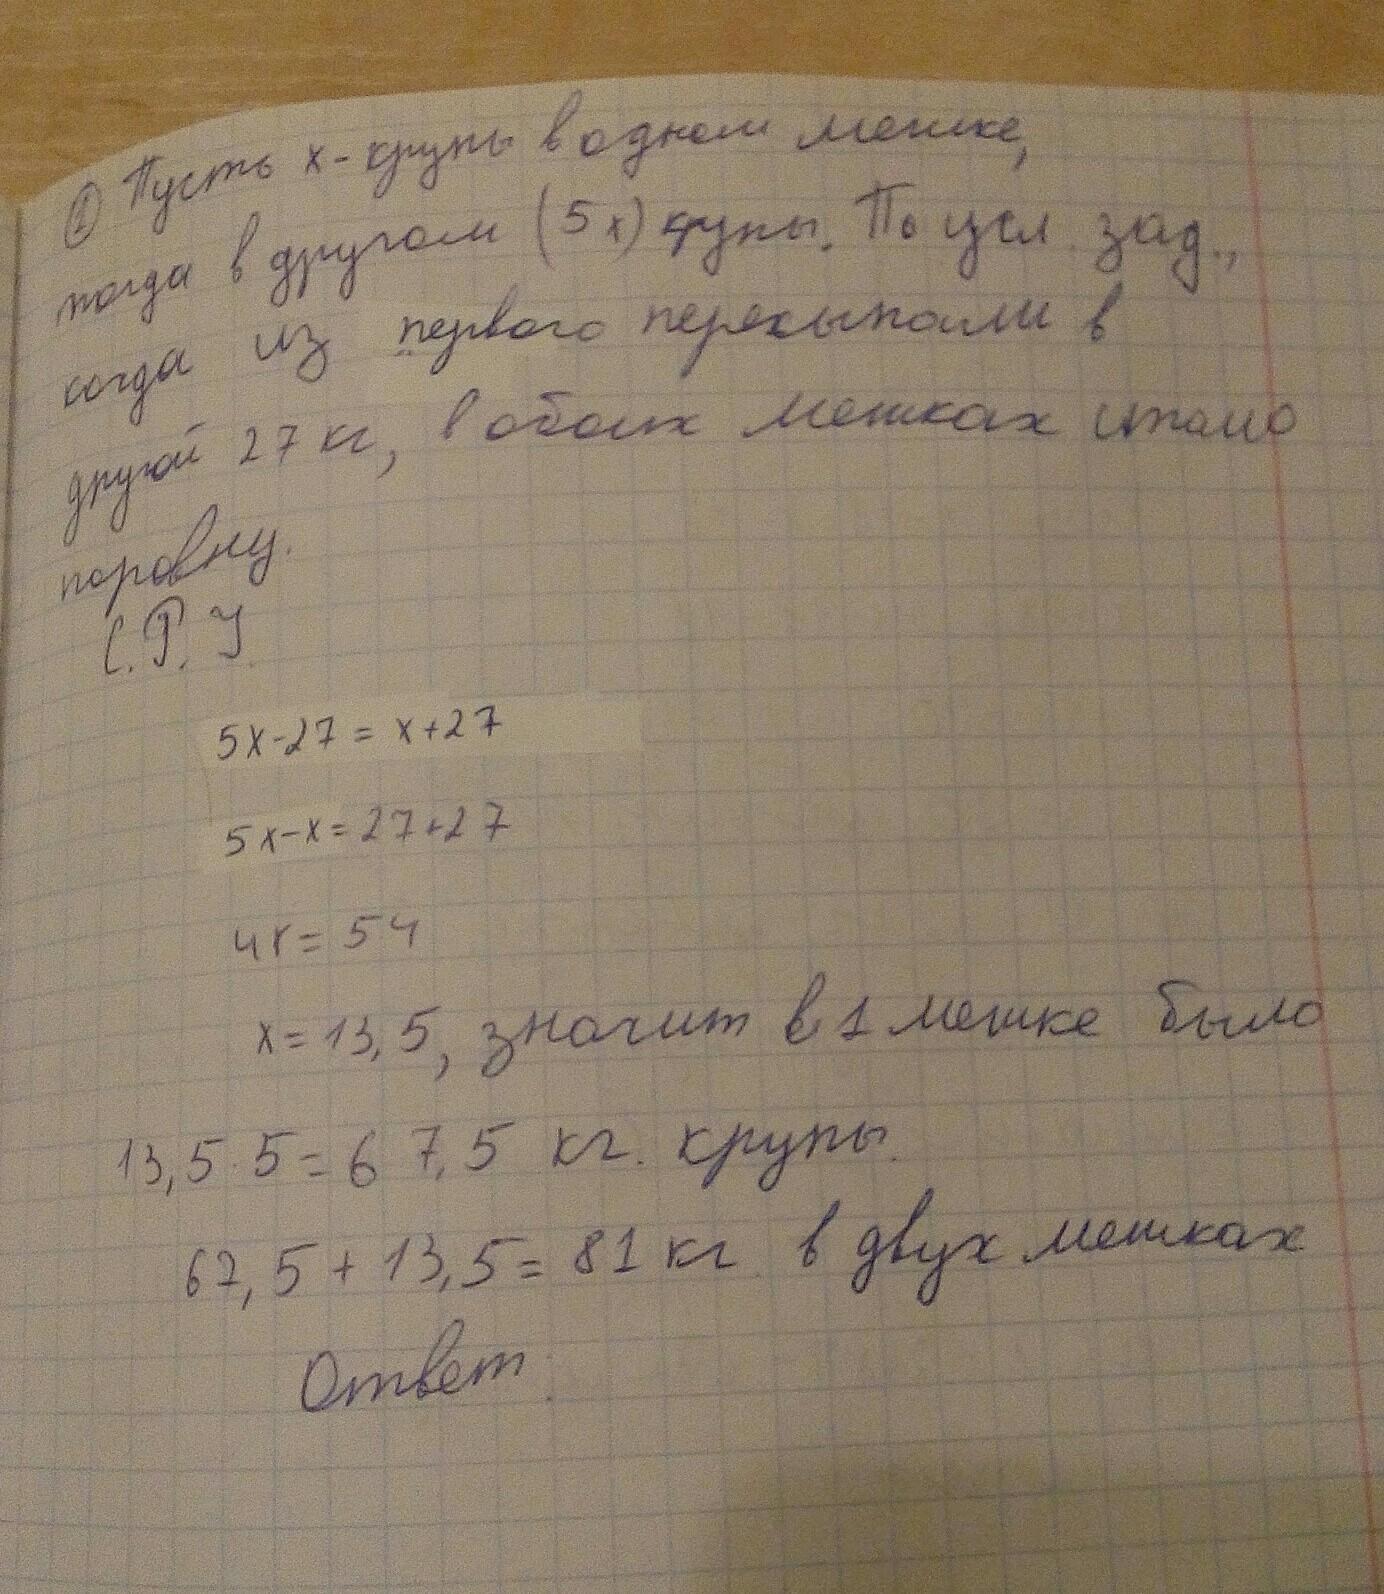 ① Пусть x - крупы в одном мешке,
тогда в другом (5x) крупы. По усл. зад.,
когда из первого пересыпали в
другой 27 кг, в обоих мешках стало
поровну.
С. Р. У.
5x-27 = x+27
5x-x=27+27
4x= 54
x= 13,5, значит в 1 мешке было
13,5·5=67,5 кг. крупы.
67,5+13,5=81 кг в двух мешках
Ответ: